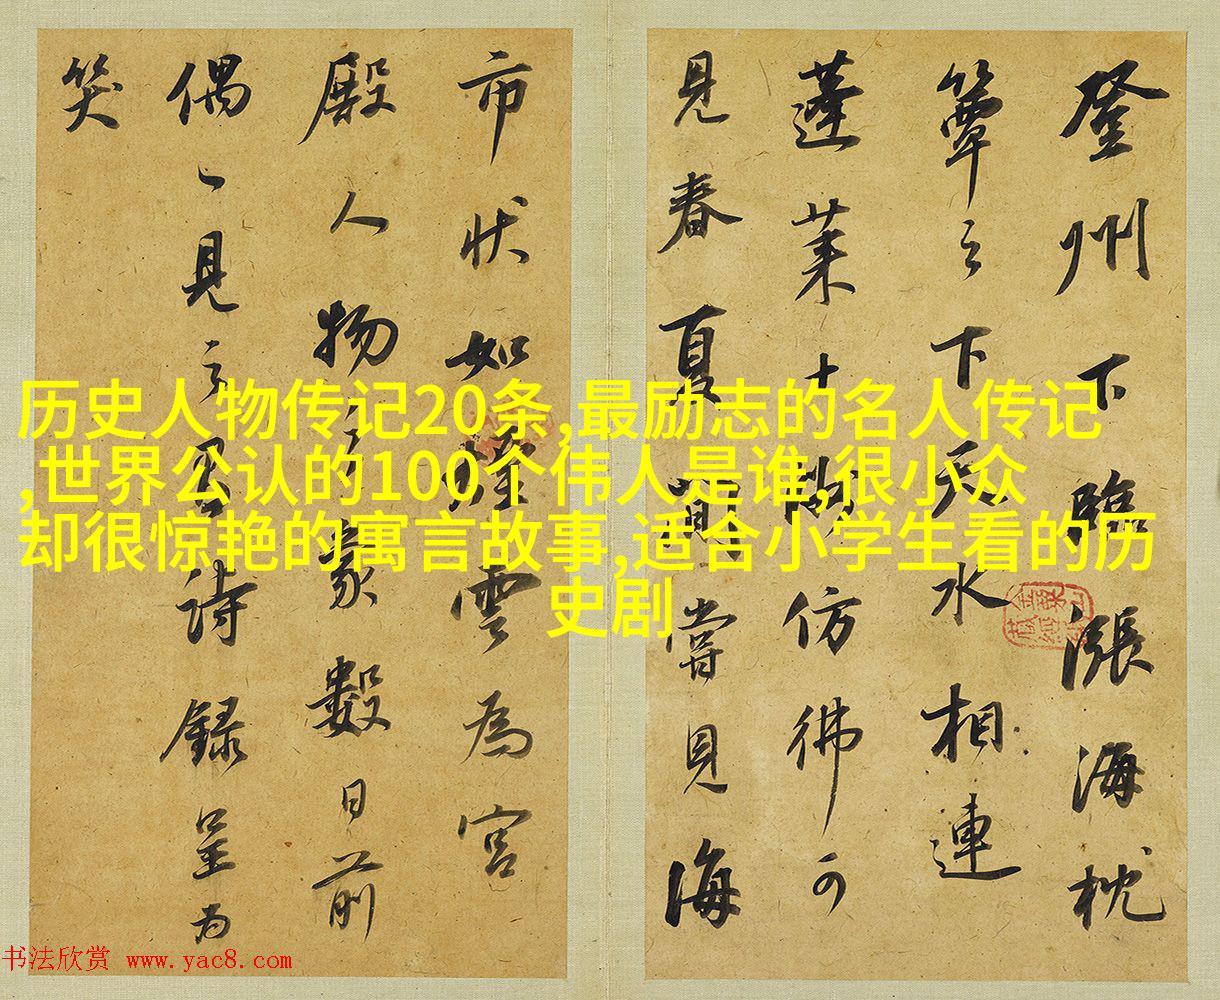 登州下臨漲海枕
簟之下天水相連
蓬莱十仿彿可
見春夏間嘗見海
市状如煙雲為宮
殿人物之象數日前
偶見之詩録呈为
笑
历史人物传记20条,最励志的名人传记
,世界公认的100个伟人是谁,很小众
却很惊艳的寓言故事,适合小学生看的历
史剧
书法欣赏 www.yac8.com